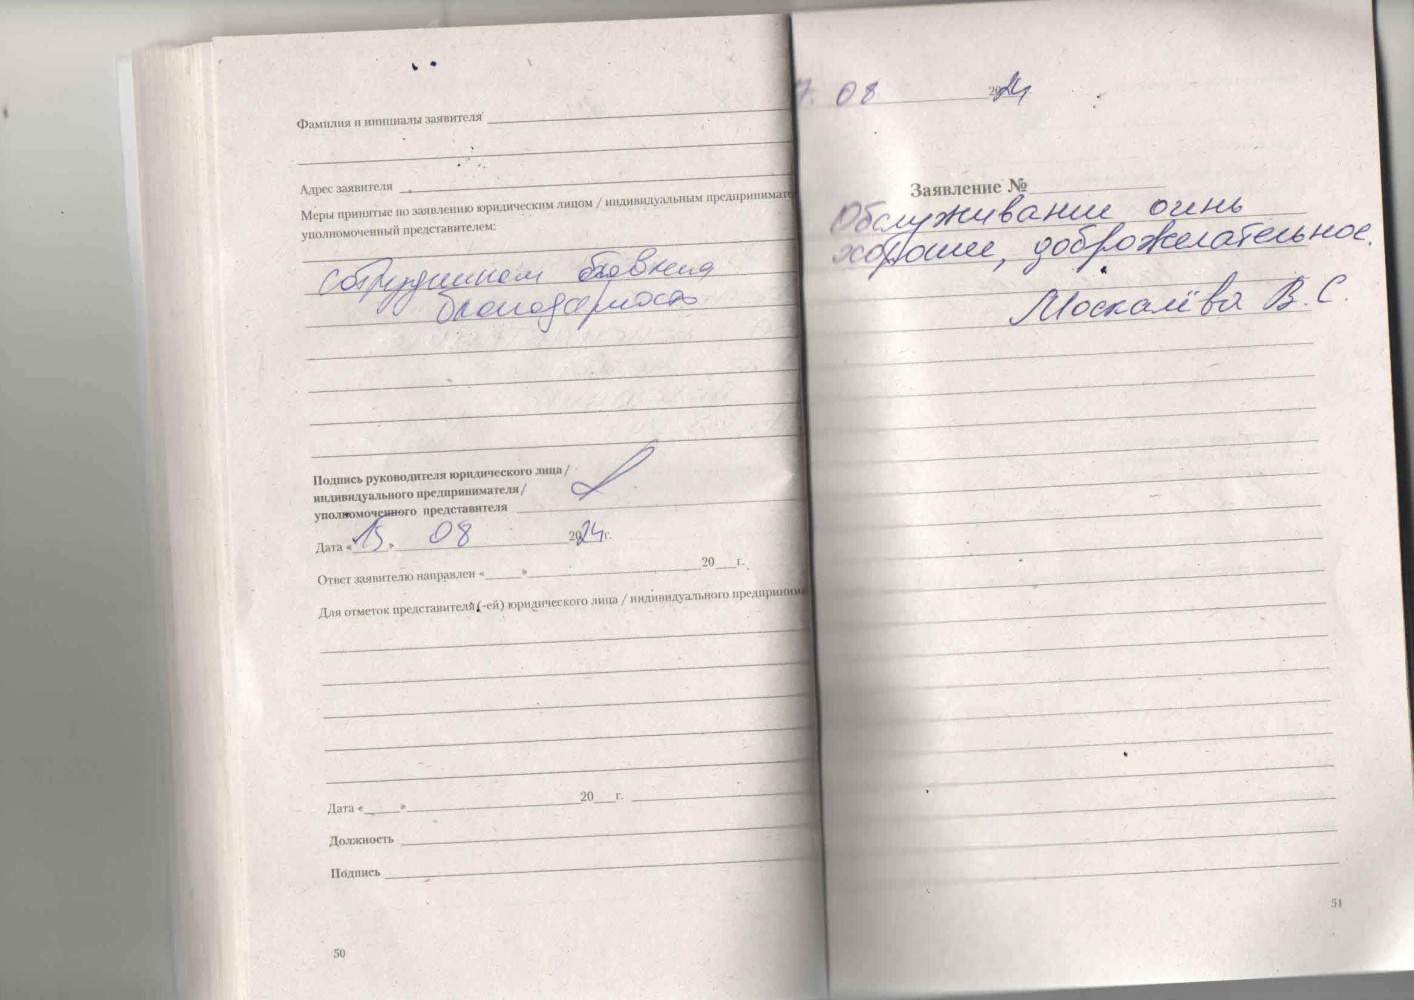 Фамилия и инициалы заявителя
Адрес заявителя
Меры принятые по заявлению юридическим лицом / индивидуальным предпринимате
уполномоченный представителем:
сотрудникам
благодарность
Подпись руководителя юридического лица /
индивидуального предпринимателя /
уполномоченного представителя
Дата «15» 08 2024г.
Ответ заявителю направлен «  » 20  г.
Для отметок представителя (-ей) юридического лица / индивидуального предпринима
Дата «  » 20  г.
Должность
Подпись
50
7. 08 2024
Заявление №
Обслуживание очень
хорошее, доброжелательное.
Москалёва В. С.
51